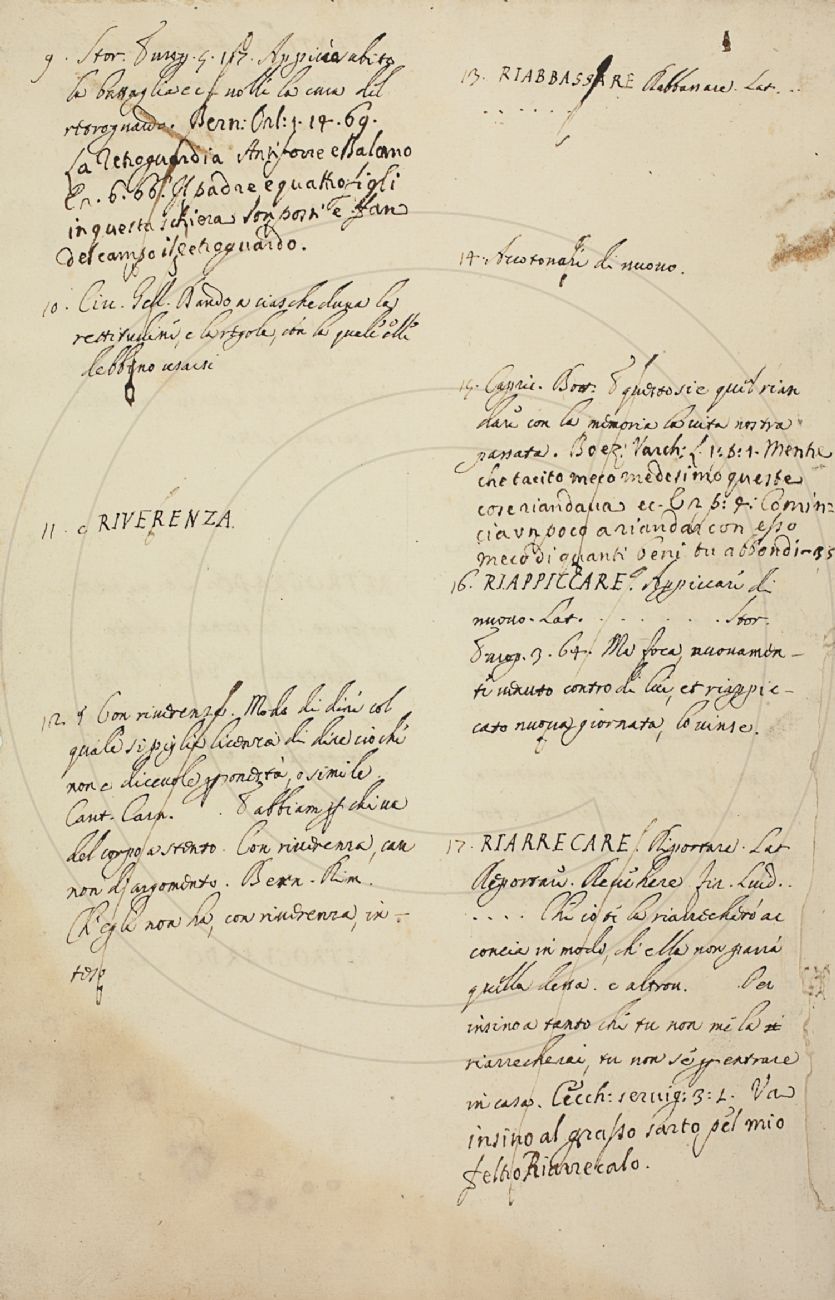 9. Stor. Europ. 5. 117. Appiccia subito
la battaglia ec. e volle la cura del
retroguardo. Bern: Orl: 1. 14. 69.
La Retroguardia Antifore e Balano
E n. 6. 66. Il padre e quattro figli
in questa schiera son posti e fan
del campo il retroguardo.
10. Circ. Gell. Dando a ciascheduna la
rettitudine, e la regola, con la quale elle
debbino usarsi
11. e RIVERENZA.
12. § Con riverenza. Modo di dire col
quale si piglia licenza di dire ciò che
non è dicevole per onestà, o simile.
Cant. Carn. E abbiam per chi va
del corpo a stento. Con riverenza, can
non d'argomento. Bern. Rim.
Ch'egli non ha, con riverenza, in-
teso
13. RIABBASSARE Rabbassare. Lat. ..
. . . . . .
14. Accotonare di nuovo.
15. Capric. Bott. E questo si è quel rian
dare con la memoria la vita nostra
passata. Boez: Varch: l. 1: 8: 1. Mentre
che tacito meco medesimo queste
cose riandava ec. E n. p: 4: Comin=
cia un poco a riandar con esso
meco di quanti beni tu abbondi
16. RIAPPICCARE. Appiccare di
nuovo. Lat. . . . . . . . Stor.
Europ. 3. 64. Ma foca, nuovamen-
te venuto contro di lui, et riappic-
cato nuova giornata, lo vinse.
17. RIARRECARE. Riportare. Lat
Reportare. Revehere. fir. Lucid..
. . . . Che io te la riarrecherò ac
concia in modo, ch'ella non parrà
quella dessa. e altrov. Per
insino a tanto che tu non me la
riarrecherai, tu non se' per entrare
in casa. Cecch: servig: 3: 2. Va
insino al grasso sarto pel mio
feltro Riarrecalo.